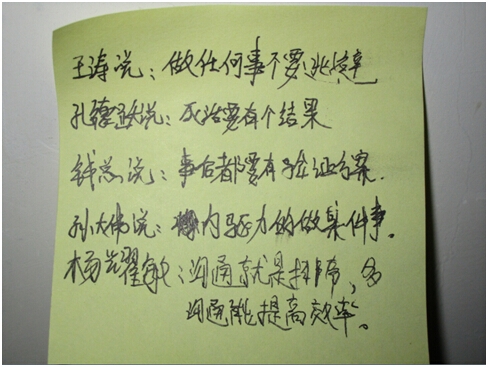 王涛说：做任何事不要逃避
孔德 说： 要有个结果
钱总说：事后都要有验证方案.
孙大伟说：内驱力的做某件事。
杨耀敏：沟通就是 ，多
沟通能提高效率。